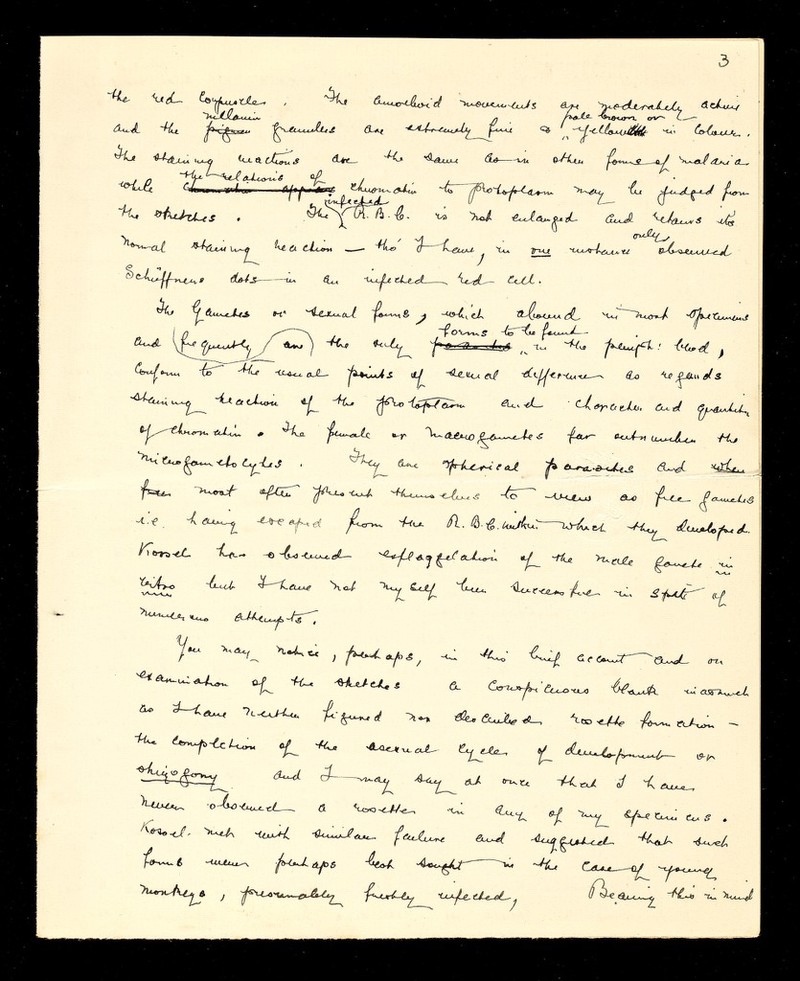 3
the red corpuscles. The amoeboid movements are moderately active
mellanin pale brown or
and the granules are extremely fine & yellow in colour.
The staining reactions are the same as in other forms of malaria
the relations of
while chromatin appears chromatin to protoplasm may be judged from
infected
the sketches. The R.B.C. is not enlarged and retains its
only
normal staining reaction — tho' I have, in one instance observed
Schüffners dots in an infected red cell.
The Gametes or sexual forms, which abound in most specimens
forms to be found
and frequently are the only parasites in the periph: blood,
conform to the usual points of sexual difference as regards
staining reaction of the protoplasm and character and quantity
of chromatin. The female or macrogametes far outnumber the
microgametocytes. They are spherical parasites and when
free most often present themselves to view as free gametes
i.e. having escaped from the R.B.C. within which they developed.
Kossel has observed exflaggelation of the male gamete in
vitro but I have not myself been successful in spite of
numerous attempts.
You may notice, perhaps, in this brief account and on
examination of the sketches a conspicuous blank inasmuch
as I have neither figured nor described rosette formation —
the completion of the asexual cycle of development or
shizogony and I may say at once that I have
never observed a rosette in any of my specimens.
Kossel met with similar failure and suggested that such
forms were perhaps best sought in the case of young
monkeys, presumably freshly infected, Bearing this in mind